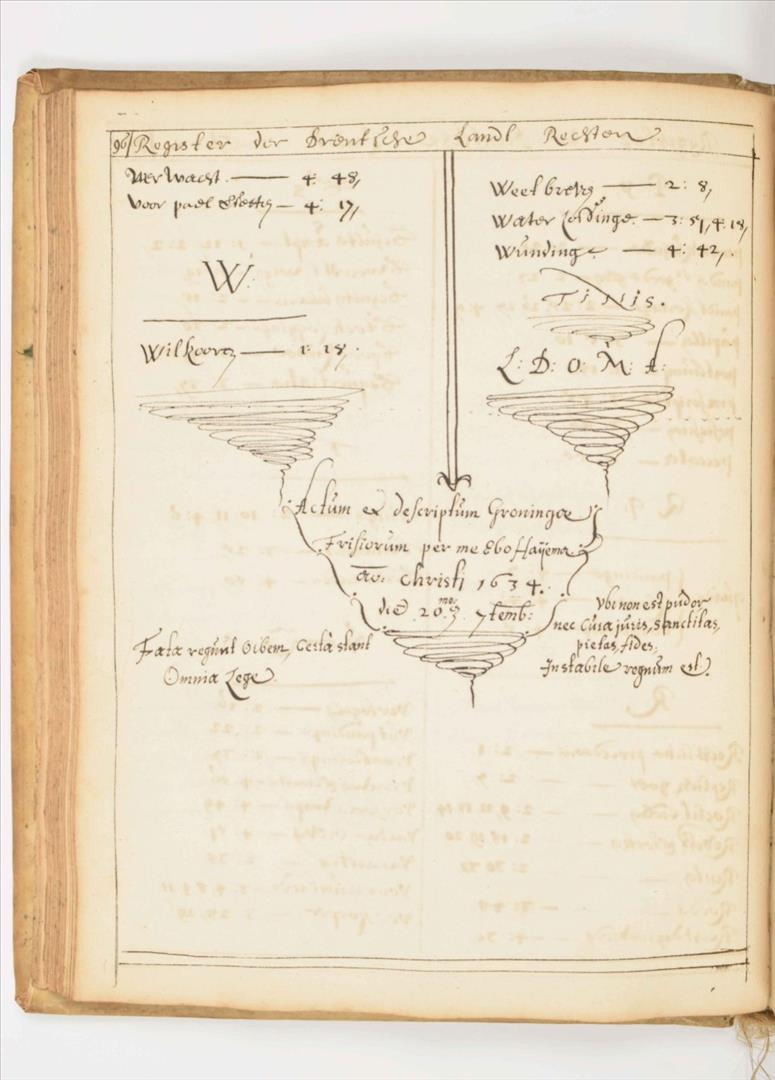 96 Register der Drentsche Landt Rechten
Verwacht. — 4: 48,
Voor pael — 4: 17,
W:
Wilkoorẽ — 1: 18.
Weetbrevẽ — 2: 8,
Water Leidinge — 3: 51, 4: 18,
Wundinge — 4: 42,
FINIS.
L: D: O: M: A:
Actum ex descriptum Groningae
Frisiorum per me Ebo Hayema
ao. Christi 1634.
die 20mo. 7temb:
Fata regunt Orbem, Certa stant
Omnia Lege
Vbi non est pudor
nec Cura juris, Sanctitas,
pietas, fides:
Instabile regnum est.